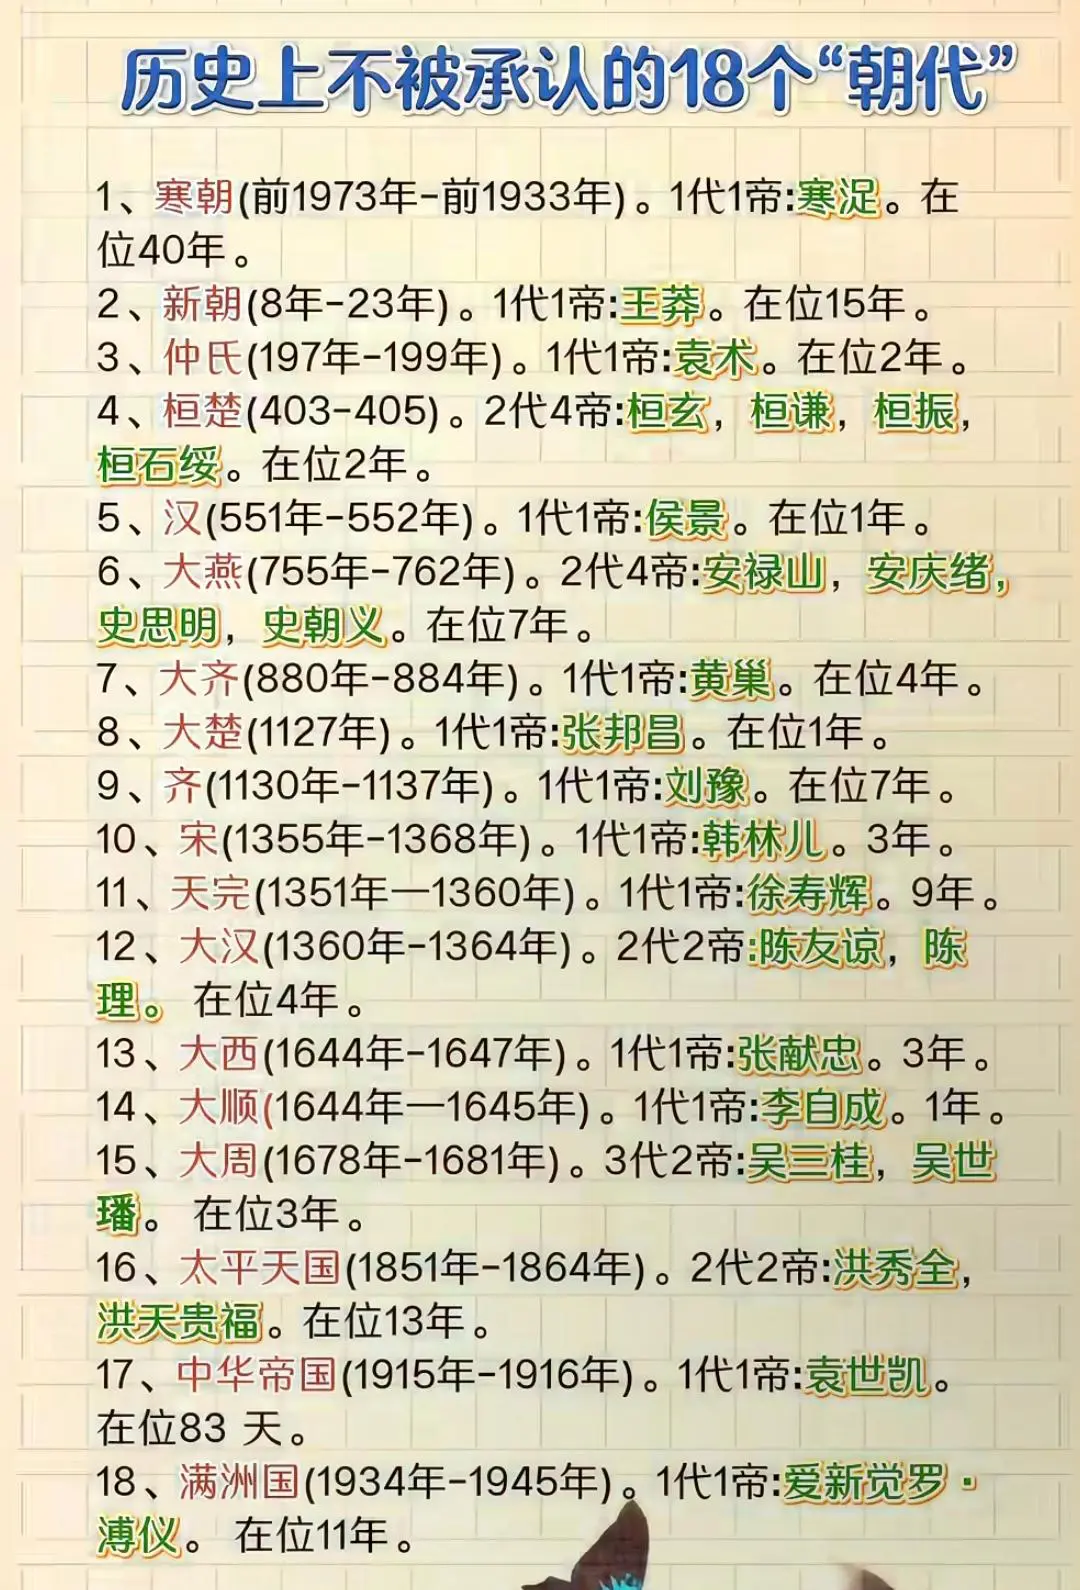 历史上不被承认的18个“朝代”
1、寒朝(前1973年-前1933年)。1代1帝:寒浞。在
位40年。
2、新朝(8年-23年)。1代1帝:王莽。在位15年。
3、仲氏(197年-199年)。1代1帝:袁术。在位2年。
4、桓楚(403-405)。2代4帝:桓玄，桓谦，桓振，
桓石绥。在位2年。
5、汉(551年-552年)。1代1帝:侯景。在位1年。
6、大燕(755年-762年)。2代4帝:安禄山，安庆绪，
史思明，史朝义。在位7年。
7、大齐(880年-884年)。1代1帝:黄巢。在位4年。
8、大楚(1127年)。1代1帝:张邦昌。在位1年。
9、齐(1130年-1137年)。1代1帝:刘豫。在位7年。
10、宋(1355年-1368年)。1代1帝:韩林儿。3年。
11、天完(1351年—1360年)。1代1帝:徐寿辉。9年。
12、大汉(1360年-1364年)。2代2帝:陈友谅，陈
理。 在位4年。
13、大西(1644年-1647年)。1代1帝:张献忠。3年。
14、大顺(1644年—1645年)。1代1帝:李自成。1年。
15、大周(1678年-1681年)。3代2帝:吴三桂，吴世
璠。 在位3年。
16、太平天国(1851年-1864年)。2代2帝:洪秀全，
洪天贵福。在位13年。
17、中华帝国(1915年-1916年)。1代1帝:袁世凯。
在位83 天。
18、满洲国(1934年-1945年)。1代1帝:爱新觉罗·
溥仪。 在位11年。